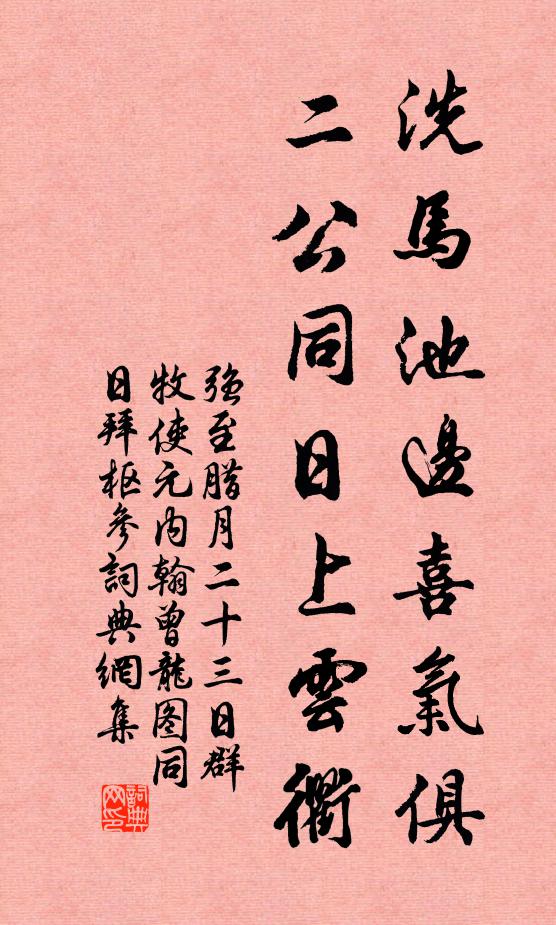 洗馬池邊喜氣俱
二公同日上雲衢
強至腊月二十三日群
牧使元内翰曾龍图同
日拜枢參詞典網集
詞典网印